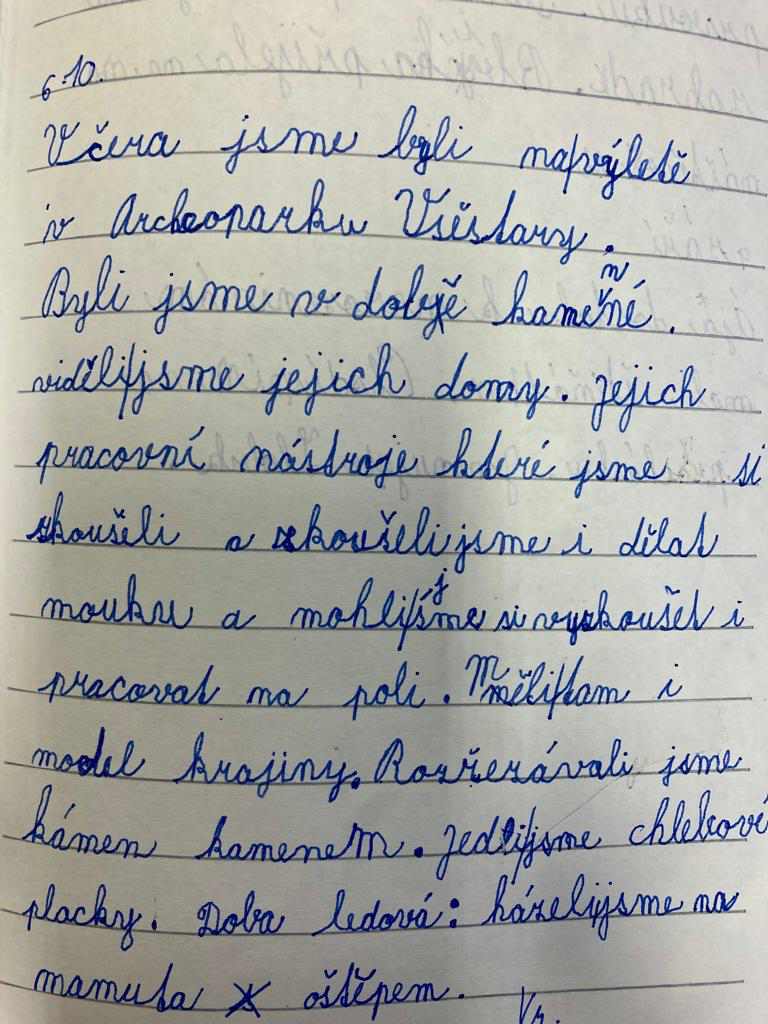 6.10.
Včera jsme byli na výletě
v Archeoparku Všestary.
Byli jsme v době kamenné.
viděli jsme jejich domy. Jejich
pracovní nástroje které jsme si
zkoušeli a zkoušeli jsme i dělat
mouku a mohli jsme si vyzkoušet i
pracovat na poli. Měli tam i
model krajiny. Rozřezávali jsme
kámen kamenem. Jedli jsme chlebové
placky. Doba ledová: házeli jsme na
mamuta oštěpem.
Vr.